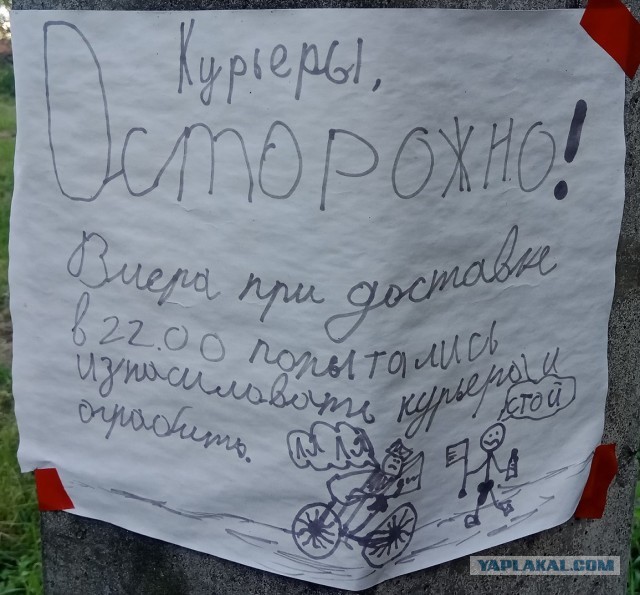 Курьеры,
Осторожно!
Вчера при доставке
в 22.00 попытались
изнасиловать курьера и
ограбить.
стой
YAPLAKAL.COM